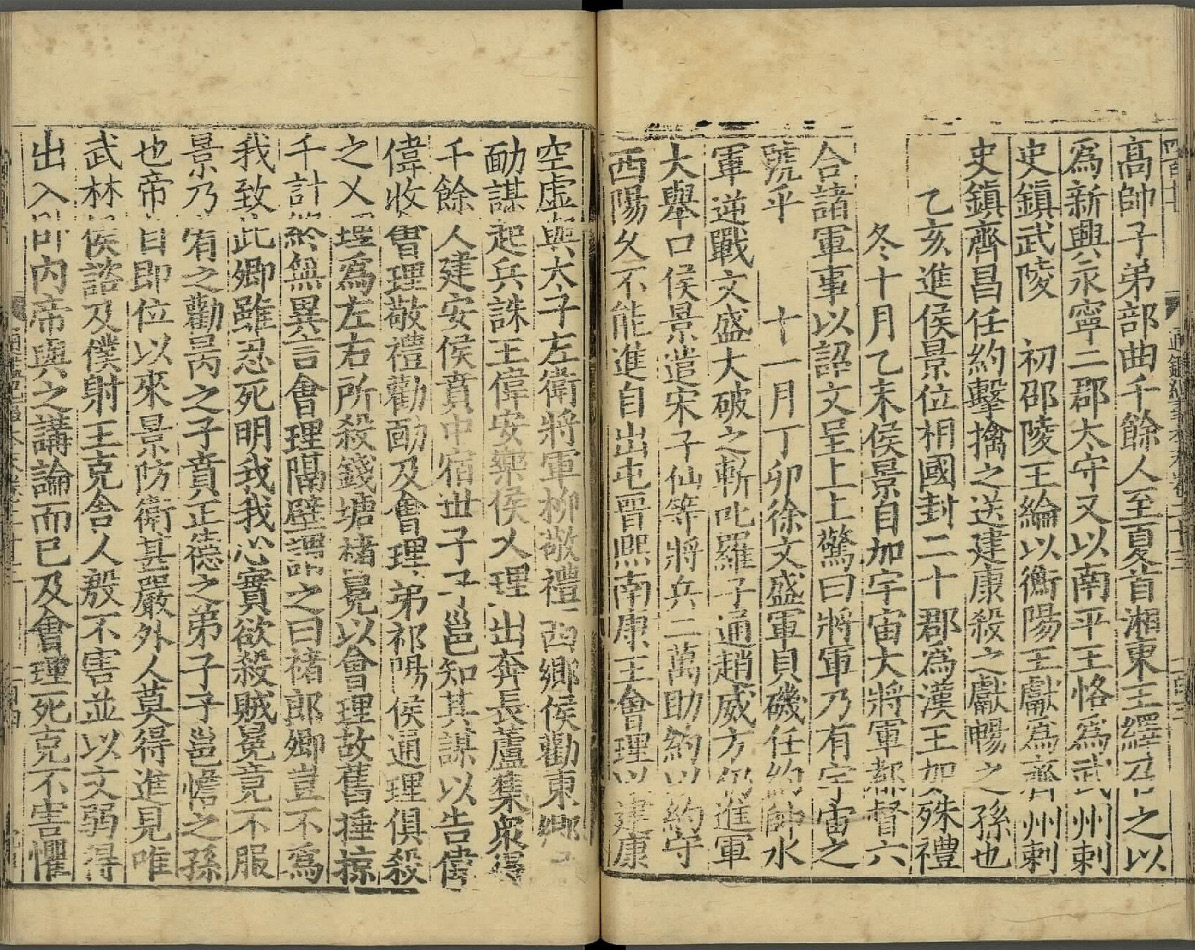 高帥子弟部曲千餘人至夏首湘東王繹召之以
為新興永寧二郡太守又以南平王恪為武州刺
史鎮武陵 初邵陵王綸以衡陽王獻為齊州刺
史鎮齊昌任約擊擒之送建康殺之獻暢之孫也
乙亥進侯景位相國封二十郡為漢王加殊禮
冬十月乙未侯景自加宇宙大將軍都督六
合諸軍事以詔文呈上上驚曰將軍乃有宇宙之
號乎 十一月丁卯徐文盛軍貝磯任約帥水
軍逆戰文盛大破之斬叱羅子通趙威方仍進軍
大舉口侯景遣宋子仙等將兵二萬助約以約守
西陽久不能進自出屯晉熙南康王會理以建康
空虛與太子左衛將軍柳敬禮西鄉侯勸東鄉
勔謀起兵誅王偉安樂侯乂理出奔長蘆集衆得
千餘人建安侯賁中宿世子子邕知其謀以告偉
偉收會理敬禮勸勔及會理弟祁陽侯通理俱殺
之乂理為左右所殺錢塘褚冕以會理故舊捶掠
千計終無異言會理隔壁謂之曰褚郎卿豈不為
我致此卿雖忍死明我我心實欲殺賊冕竟不服
景乃宥之勸昺之子賁正德之弟子子邕憺之孫
也帝自即位以來景防衛甚嚴外人莫得進見唯
武林侯諮及僕射王克舍人殷不害並以文弱得
出入卧內帝與之講論而已及會理死克不害懼